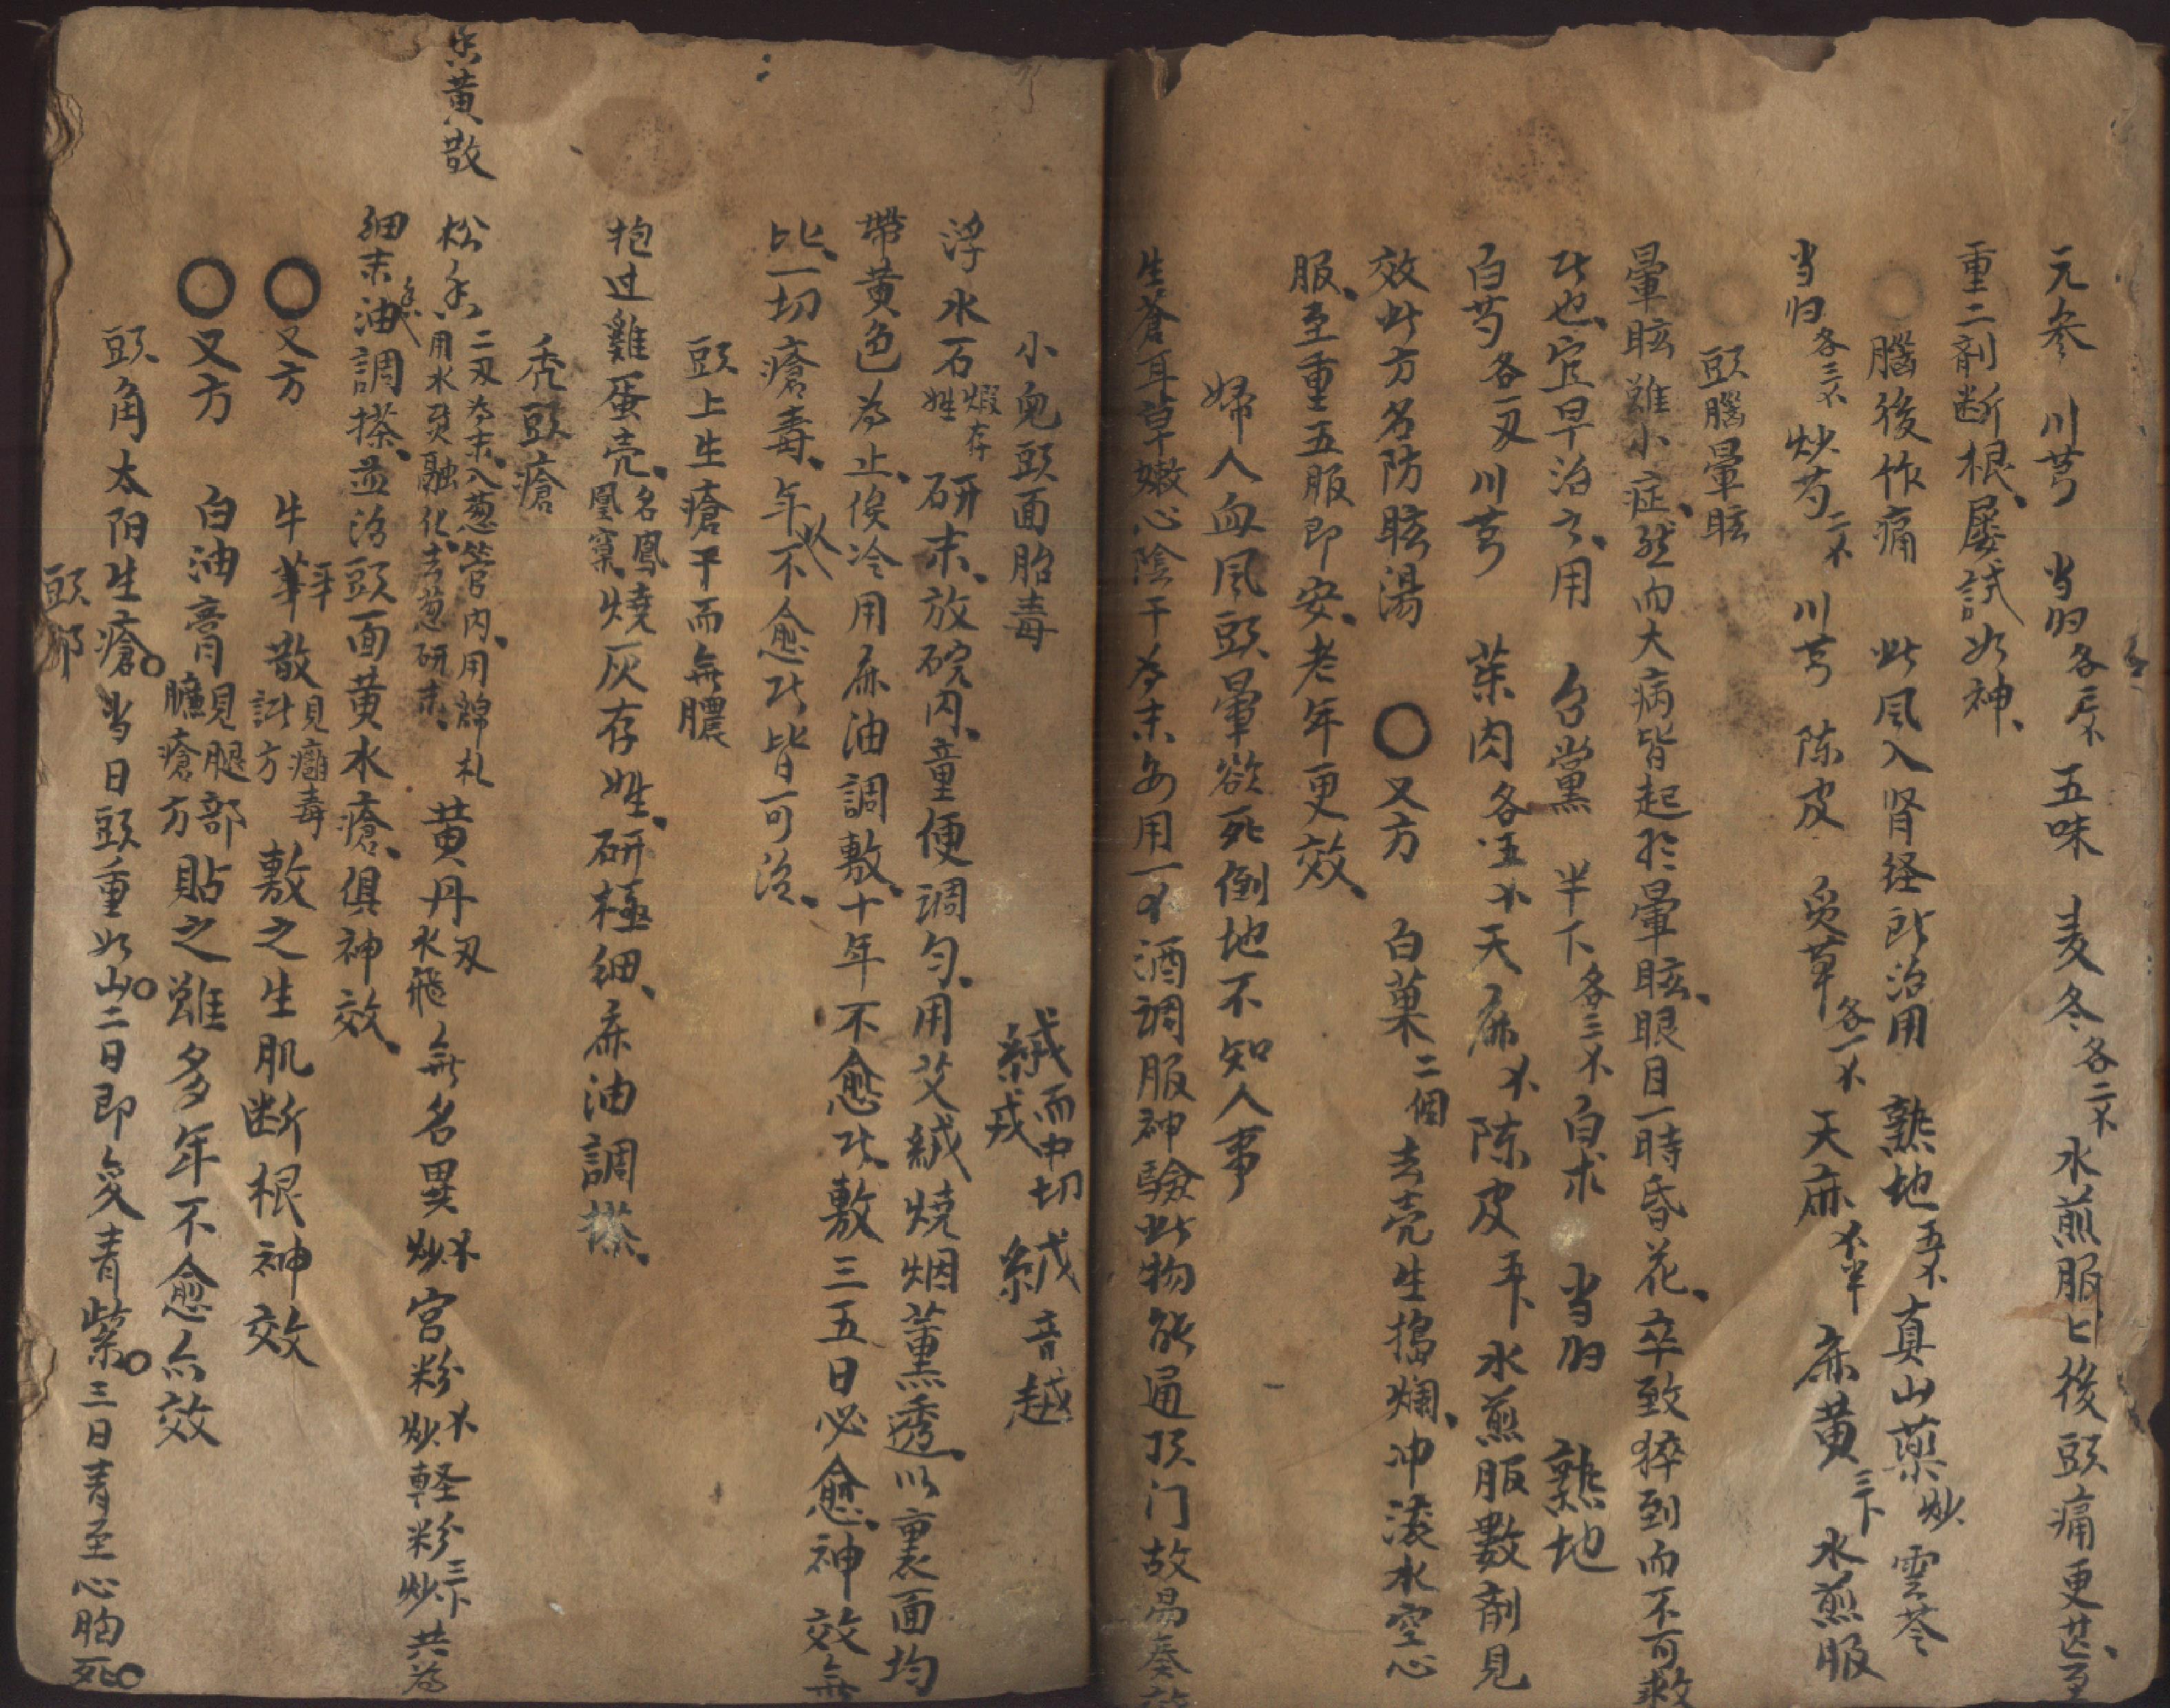 元参 川芎 当归各 五味 麦冬各二 水煎服匕後頭痛更甚
重二劑断根、屡試如神、
腦後作痛 此風入肾経所治用 熟地五 真山藥炒 雲苓
当归各三 炒芍二 川芎 陈皮 炙草各一 天麻 半 麻黄三 水煎服
頭腦暈眩
暈眩雖小症、然而大病皆起於暈眩、眼目一時昏花、卒致猝到而不可救
此也、宜早治之、用 台黨 半下各三 白朮 当归 熟地
白芍各一刄 川芎 茱肉各五 天麻 陈皮 水煎服數劑見
效此方名防眩湯 〇又方 白菓二個 去壳生搗爛、冲滚水空心
服、至重五服即安、老年更效、
婦人血風頭暈欲死倒地不知人事
生蒼耳草嫩心陰干為末 用一 酒調服神驗此物能通顶门故易奏
小兒頭面胎毒 絨而中切 絨音越
浮水石煅存姓 研末、放碗内、童便調匀、用艾絨燒烟薰透、以裏面均
帶黄色為止、俟冷用麻油調敷、十年不愈此敷三五日必愈、神效無
比、一切瘡毒、年久不愈此皆可治、
頭上生瘡干而無膿
抱过雞蛋壳、名鳳凰窠、燒灰存姓、研極細、麻油調搽、
秃頭瘡
黄散 松香二刄為末、入葱管内、用綿札用水煑融化、去葱研末、 黄丹刄水飛 無名異炒 宫粉炒 軽粉三炒 共為
細末香油調搽、並治頭面黄水瘡、俱神效、
〇又方 牛 散見癰毒 方 敷之生肌断根神效
〇又方 白油膏見腿部臁瘡方 貼之雖多年不愈亦效
頭角太阳生瘡。当日頭重如山。二日即变青紫。三日青至心胸死。
頭部